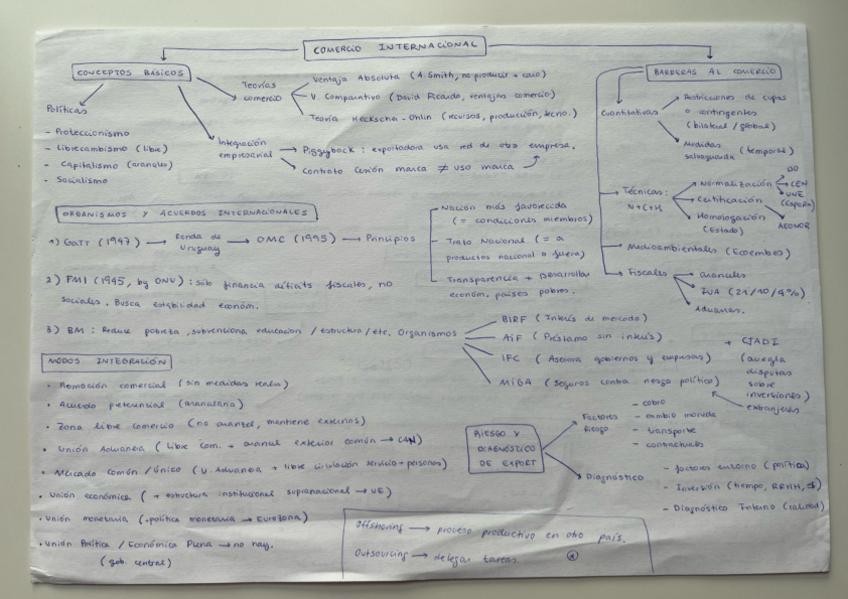 COMERCIO INTERNACIONAL
CONCEPTOS BÁSICOS
Políticas
- Proteccionismo
- Librecambismo (libre)
- Capitalismo (aranceles)
- Socialismo
Teorías comercio
Ventaja Absoluta (A. Smith, no producir + caro)
V. Comparativa (David Ricardo, ventajas comercio)
Teoría Heckscher-Ohlin (recursos, producción, tecno.)
Integración empresarial
Piggyback: exportadora usa red de otra empresa.
Contrato cesión marca ≠ uso marca
BARRERAS AL COMERCIO
Cuantitativas
Restricciones de cupos
o contingentes
(bilateral / global)
Medidas
salvaguarda (temporal)
Técnicas:
N+C+H
Normalización
CEN
UNE
(España)
Certificación
AENOR
Homologación
(Estado)
Medioambientales (Ecoembes)
Fiscales
aranceles
IVA (21/10/4%)
Aduanas.
ORGANISMOS Y ACUERDOS INTERNACIONALES
1) GATT (1947) → Ronda de Uruguay → OMC (1995) → Principios
Nación más favorecida
(= condiciones miembros)
Trato Nacional (= a
productos nacional o fuera)
Transparencia + Desarrollar
económ. países pobres.
2) FMI (1945, by ONU): sólo financia déficits fiscales, no
sociales. Busca estabilidad económ.
3) BM: Reduce pobreza, subvenciona educación / estructura / etc. Organismos
BIRF (Interés de mercado)
AIF (Préstamo sin interés)
IFC (Asesora gobiernos y empresas)
MIGA (Seguros contra riesgo político)
+ CIADI
(arregla
disputas
sobre
inversiones)
extranjeras
MODOS INTEGRACIÓN
• Promoción comercial (sin medidas reales)
• Acuerdo preferencial (arancelaria)
• Zona libre comercio (no arancel, mantiene externos)
• Unión Aduanera (libre com. + arancel exterior común → CAN)
• Mercado común / único (U. Aduanera + libre circulación servicio + personas)
• Unión económica (+ estructura institucional supranacional → UE)
• Unión monetaria (+ política monetaria → Eurozona)
• Unión Política / Económica Plena → no hay.
(gob. central)
RIESGO Y
DIAGNÓSTICO
DE EXPORT
Factores
Riesgo
- cobro
- cambio moneda
- transporte
- contractuales
Diagnóstico
- factores entorno (política)
- Inversión (tiempo, RRHH, $)
- Diagnóstico Interno (calidad)
Offshoring → proceso productivo en otro país.
Outsourcing → delegar tareas.